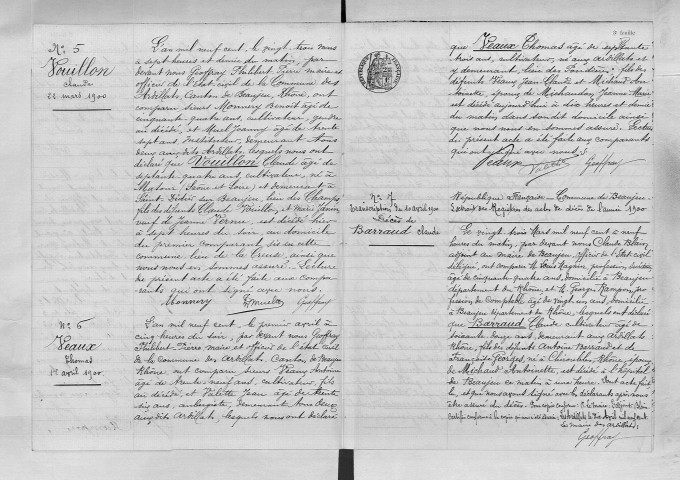 N° 5
Vouillon
Claude
22 mars 1900
L'an mil neuf cent le vingt trois mars
à sept heures et demie du matin, par
devant nous Geoffray Philibert Pierre maire et
officier de l'état civil de la Commune des
Ardillats, Canton de Beaujeu, Rhône, ont
comparu sieurs Monnery Benoit âgé de
cinquante quatre ans, cultivateur, gendre
au décédé, et Muel Jeanny âgé de trente
sept ans, Instituteur, demeurant tous
deux aux dits Ardillats, lesquels nous ont
déclaré que Vouillon Claude âgé de
septante quatre ans, cultivateur, né à
Matour (Saône et Loire) et demeurant à
Saint Didier sur Beaujeu, lieu des Champs
fils des défunts Claude Vouillon, et marié
veuf de Jeanne Vernu est décédé hier
à sept heures du soir, au domicile
du premier comparant sis en cette
commune lieu de la Creuse, ainsi que
nous nous en sommes assuré. Lecture
du présent acte a été fait aux compa-
rants qui ont signé avec nous.
Monnery Geoffray
N° 6
Veaux
Thomas
1er avril 1900
L'an mil neuf cent le premier avril à
cinq heures du soir, par devant nous Geoffray
Philibert Pierre maire et officier de l'état civil
de la Commune des Ardillats Canton de Beaujeu
Rhône, ont comparu sieurs Veaux Antoine
âgé de trente neuf ans, cultivateur, fils
au décédé, et Valette Jean âgé de trente
six ans, aubergiste, demeurant tous deux
aux dits Ardillats, lesquels nous ont déclaré
que Veaux Thomas âgé de septante
trois ans, cultivateur, aux Ardillats et
y demeurant, lieu des, fils des
défunts Veaux Jean Claude et Michaud
époux de Michaudon, Jeanne Marie
est décédé aujourd'hui à dix heures et demie
du matin dans son dit domicile ainsi
que nous nous en sommes assuré. Lecture
du présent acte a été faite aux comparants
qui ont signé avec nous.
Veaux Geoffray
N° 7
Transcription du 10 avril 1900
Décès de
Barraud Claude
République Française - Commune de Beaujeu
Extrait des Registres des actes de décès de l'année 1900
Le vingt trois Mars mil neuf cent à neuf
heures du matin, par devant nous Claude Blain
adjoint au maire de Beaujeu, officier de l'Etat civil
délégué, ont comparu M. Louis professeur,
âgé de cinquante quatre ans, domicilié à Beaujeu
département du Rhône, et M. George Rampon, pro-
fession de Comptable âgé de vingt un ans, domicilié
à Beaujeu département du Rhône, lesquels ont déclaré
que Barraud Claude cultivateur âgé de
soixante douze ans, demeurant aux Ardillats
Rhône, fils des défunts Antoine Barraud et de
Françoise Georges, né à Chiroubles, Rhône, époux
de Michaud Antoinette, est décédé à l'hôpital
de Beaujeu ce matin à une heure. Dont acte fait
lu, et que nous avons signé avec les déclarants après nous
être assuré du décès.
certifié conforme à la copie
Le maire des Ardillats,
Geoffray